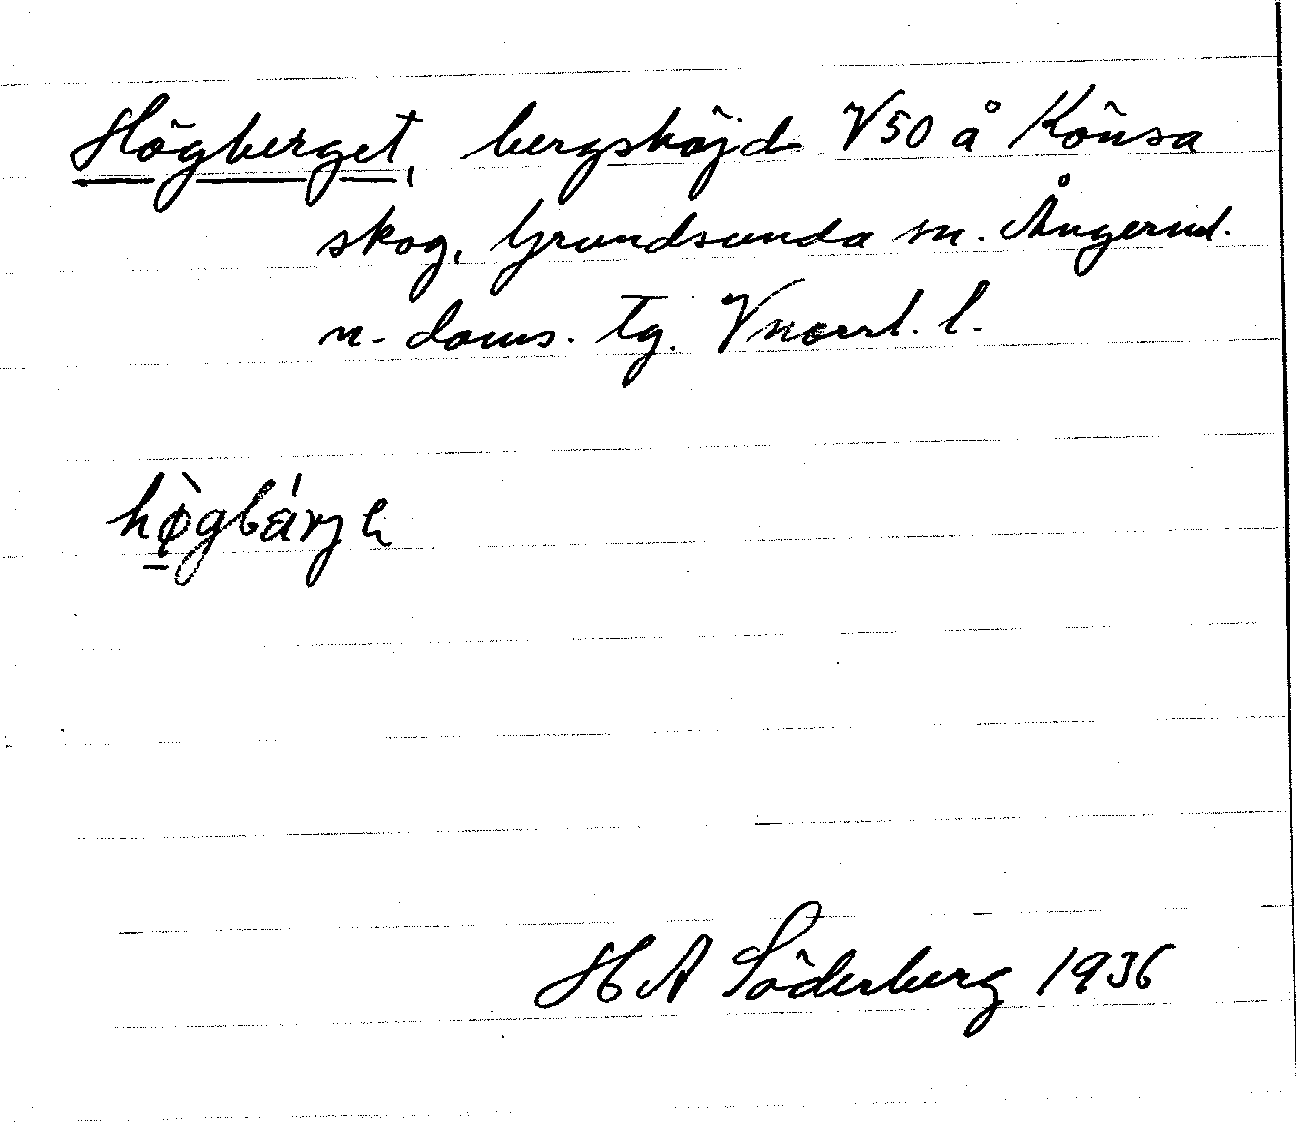 Högberget, bergshöjd V50 å Könsa
skog, Grundsunda sn. Ångerml.
n. doms. tg. Vnorrl. l.
hø̀gbárjɛ
H A Söderberg 1936